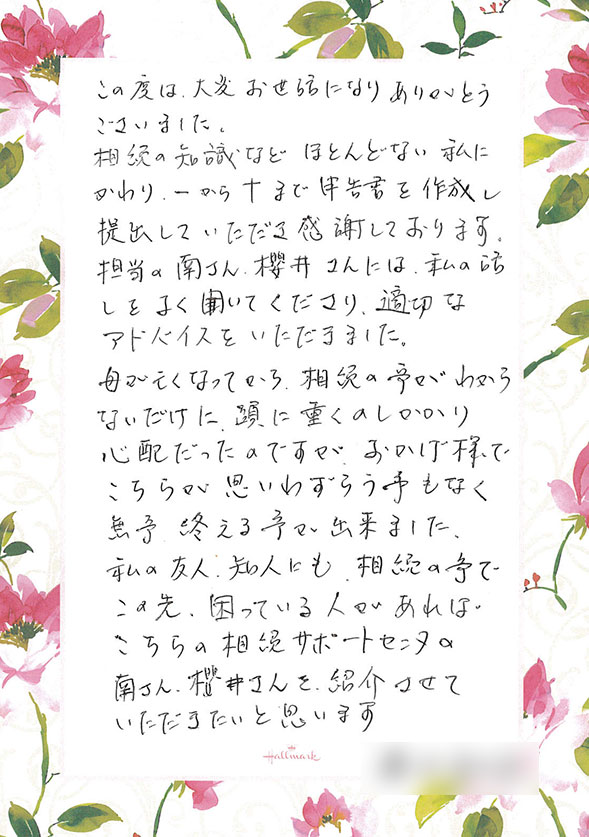 この度は、大変お世話になりありがとう
ございました。
相続の知識など ほとんどない 私に
かわり、一から十まで 申告書を作成し
提出していただき感謝しております。
担当の南さん、櫻井さんには、私の話
しをよく聞いてくださり、適切な
アドバイスをいただきました。
母が亡くなってから、相続の事がわから
ないだけに、頭に重くのしかかり
心配だったのですが、おかげ様で
こちらが思いわずらう事もなく
無事、終える事が出来ました、
私の友人、知人にも、相続の事で
この先、困っている人があれば
こちらの相続サポートセンタの
南さん、櫻井さんを、紹介させて
いただきたいと思います
Hallmark